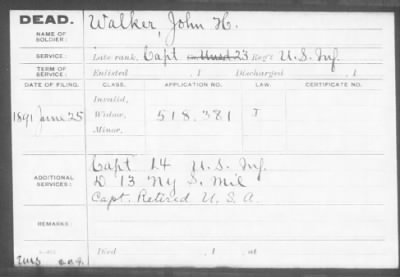 DEAD. Walker, John H.
NAME OF SOLDIER:
SERVICE: Late rank, Capt 23 Reg't U.S. Inf.
TERM OF SERVICE: Enlisted , 1 Discharged , 1
DATE OF FILING. CLASS. APPLICATION NO. LAW. CERTIFICATE NO.
Invalid,
1891 June 25 Widow, 518.381
Minor,
ADDITIONAL SERVICES: Capt 14 U.S. Inf.
D 13 Ny S. Mil
Capt. Retired U.S.A.
REMARKS:
Died , 1 , at